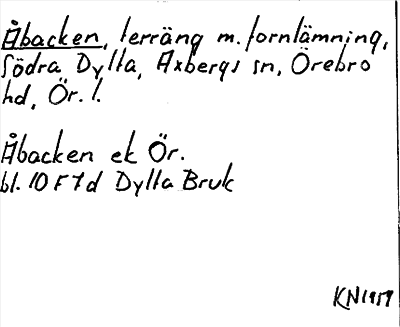 Åbacken, terräng m. fornlämning,
Södra Dylta, Axbergs sn, Örebro
hd, Ör. l.
Åbacken ek Ör.
bl. 10 F 7 d Dylta Bruk